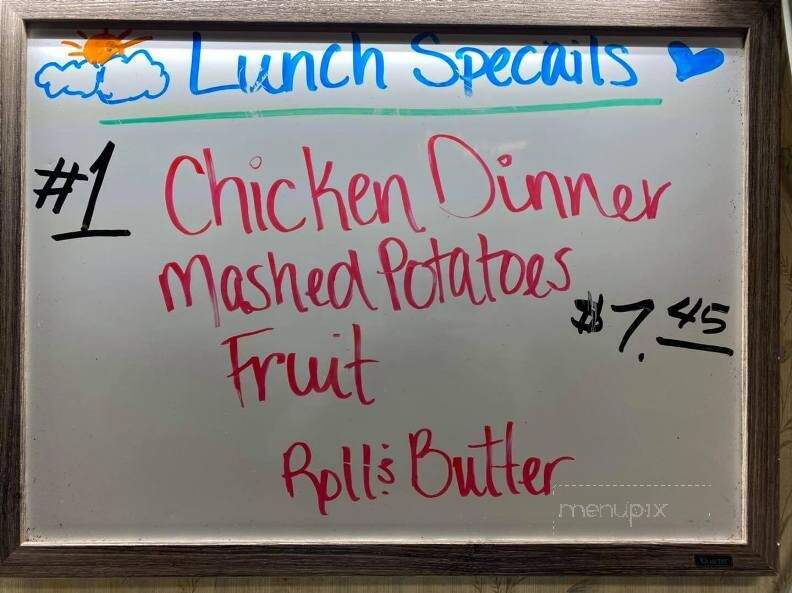 Lunch Specails
#1 Chicken Dinner
Mashed Potatoes
$7.45
Fruit
Roll & Butter
menupix
Quartet